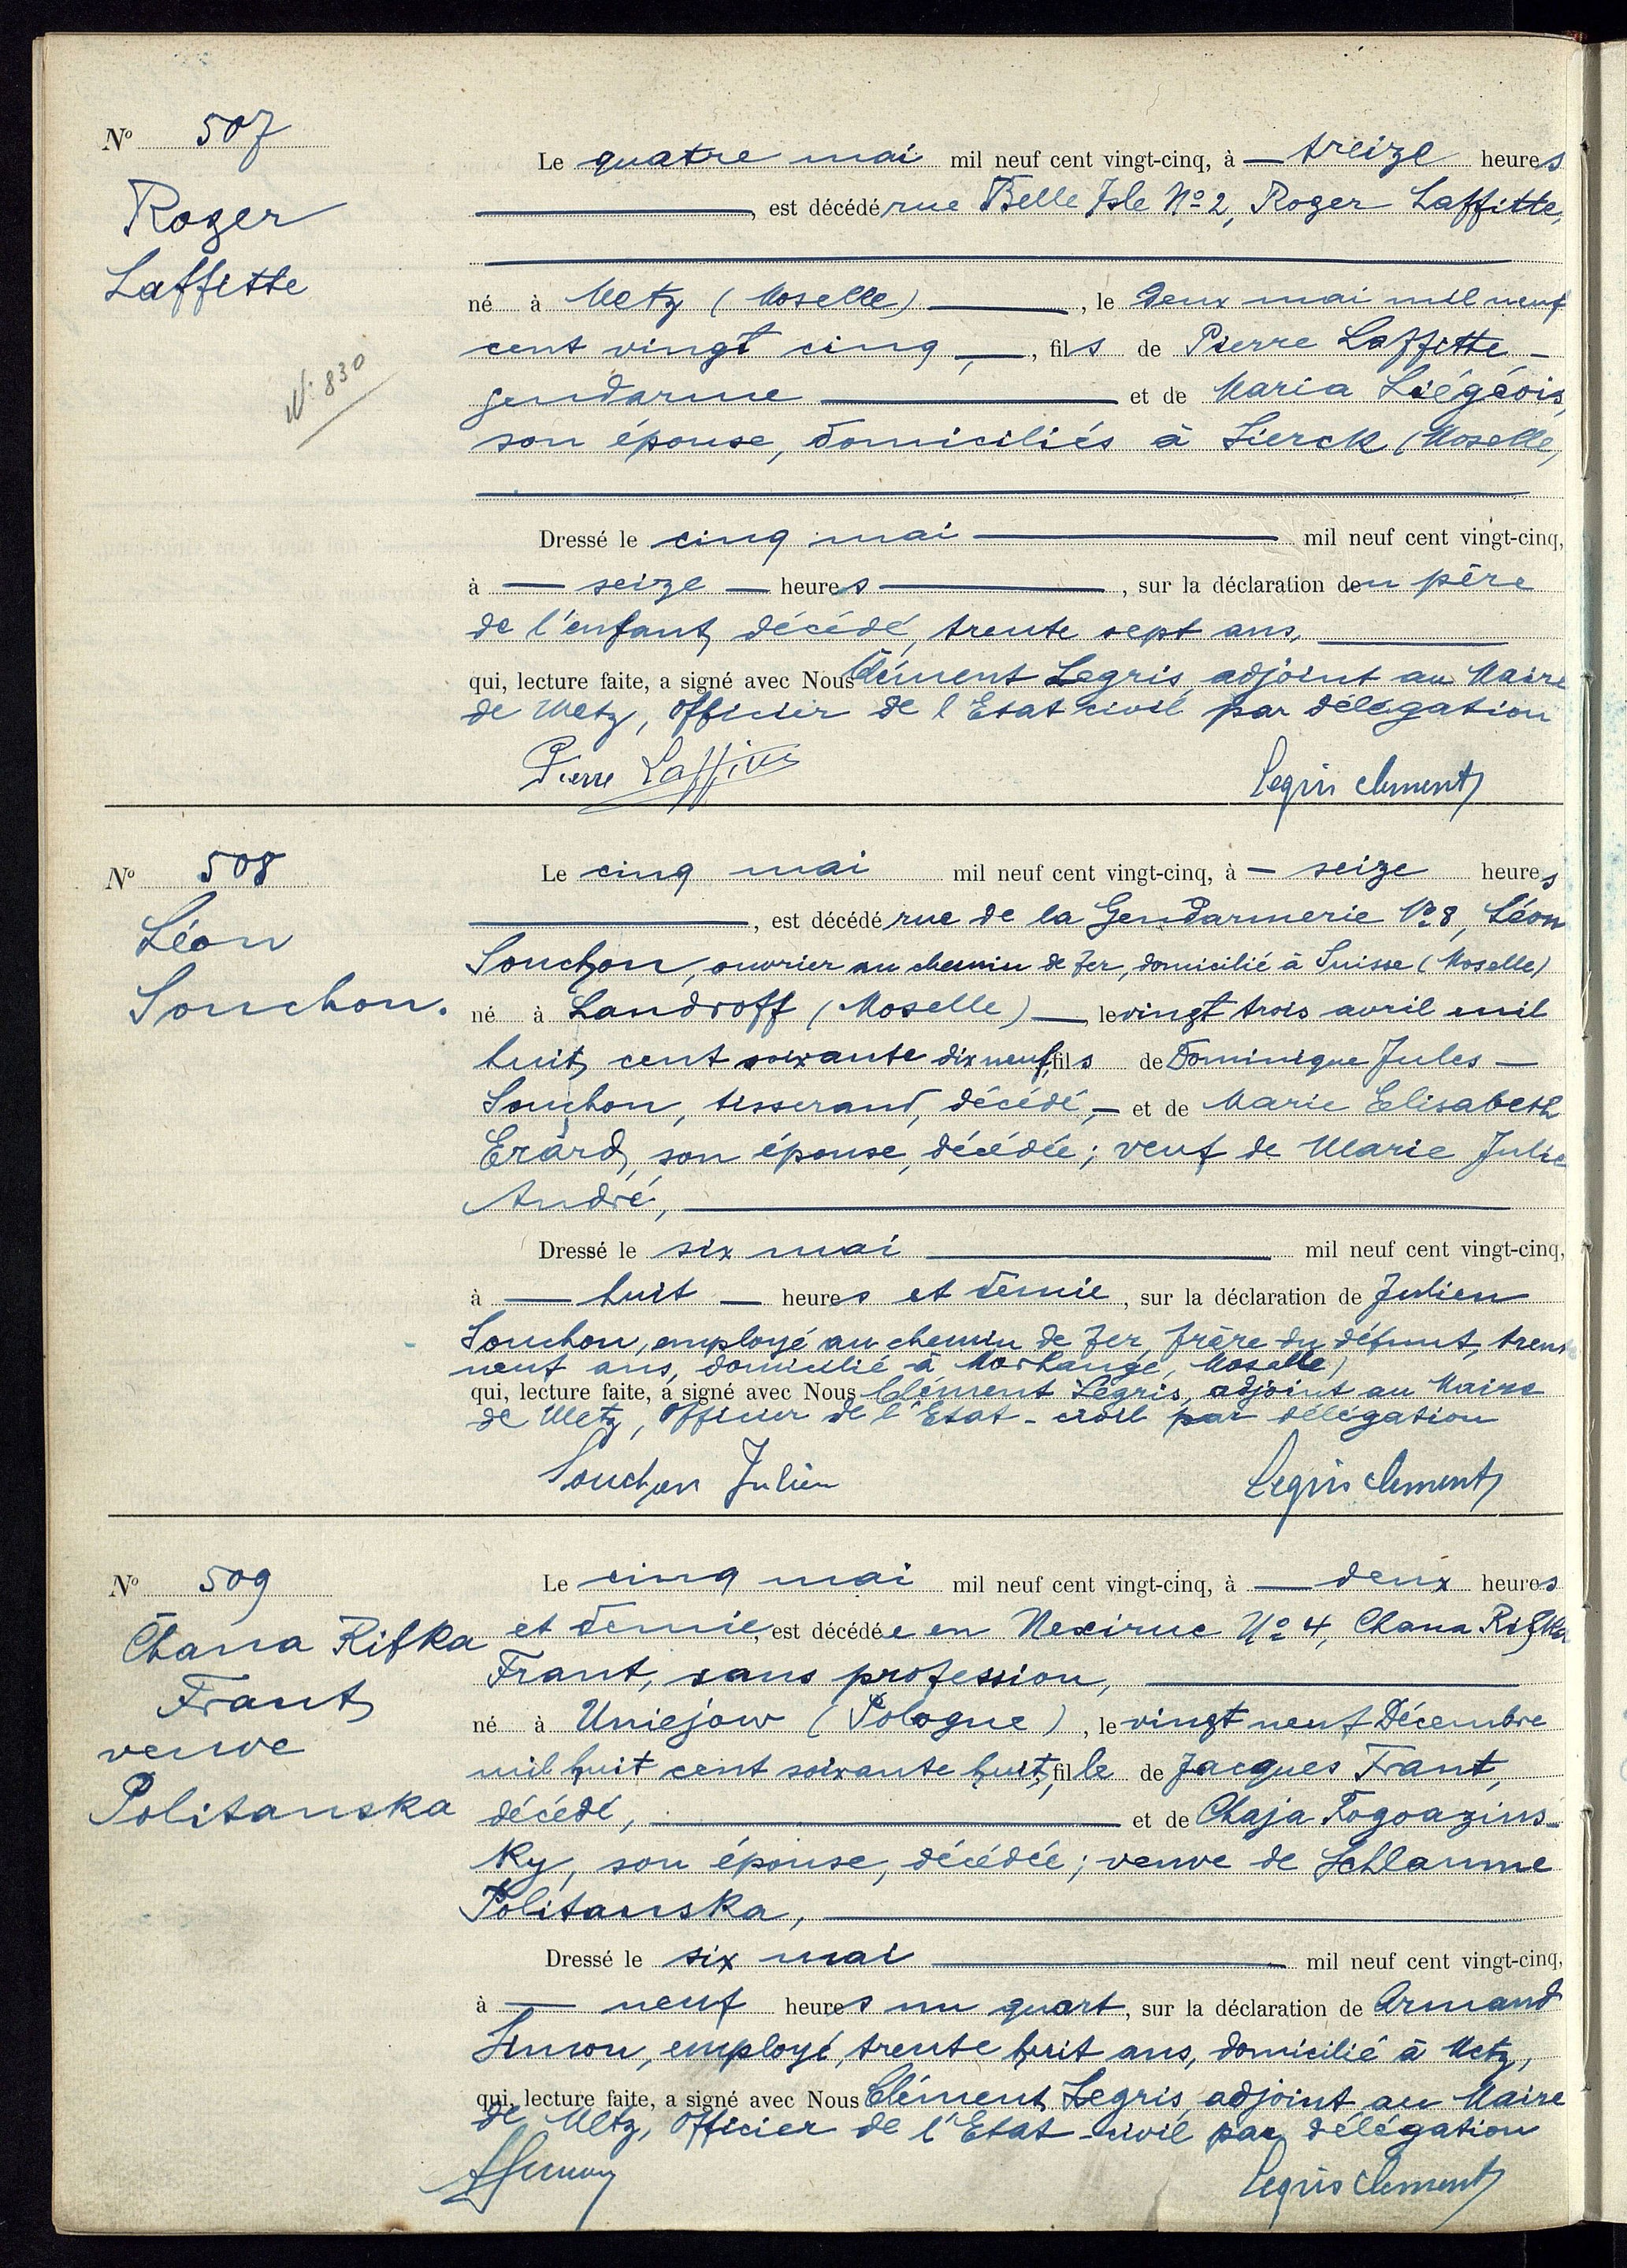 Nº 507
Roger
Laffitte
N: 830
Le quatre mai mil neuf cent vingt-cinq, à — treize heures
—, est décédé rue Belle Isle Nº 2, Roger Laffitte,
né à Metz (Moselle) —, le deux mai mil neuf
cent vingt cinq —, fils de Pierre Laffitte —
gendarme — et de Maria Liégeois,
son épouse, domiciliés à Sierck (Moselle,
Dressé le cinq mai — mil neuf cent vingt-cinq,
à — seize — heures —, sur la déclaration du père
de l'enfant décédé, trente sept ans, —
qui, lecture faite, a signé avec Nous Clément Legris, adjoint au Maire
de Metz, Officier de l'Etat civil par délégation
Pierre Laffitte
Legris Clement
Nº 508
Léon
Souchon.
Le cinq mai mil neuf cent vingt-cinq, à — seize heures
—, est décédé rue de la Gendarmerie Nº 8, Léon
Souchon, ouvrier au chemin de fer, domicilié à Suisse (Moselle)
né à Landroff (Moselle) —, le vingt trois avril mil
huit cent soixante dix neuf, fils de Dominique Jules —
Souchon, tisserand, décédé, — et de Marie Elisabeth
Erard, son épouse, décédée; veuf de Marie Julie
André, —
Dressé le six mai — mil neuf cent vingt-cinq,
à — huit — heures et demie, sur la déclaration de Julien
Souchon, employé au chemin de fer, frère du défunt, trente
neuf ans, domicilié à Morhange, Moselle)
qui, lecture faite, a signé avec Nous Clément Legris, adjoint au Maire
de Metz, Officier de l'Etat-civil par délégation
Souchon Julien
Legris Clement
Nº 509
Chana Rifka
Frant
veuve
Politanska
Le cinq mai mil neuf cent vingt-cinq, à — deux heures
et demie, est décédée en Nexirue Nº 4, Chana Rifka
Frant, sans profession, —
né à Uniejow (Pologne), le vingt neuf Décembre
mil huit cent soixante huit, fille de Jacques Frant,
décédé, — et de Chaja Rogoazins-
ky, son épouse, décédée; veuve de Schlamme
Politanska, —
Dressé le six mai — mil neuf cent vingt-cinq,
à — neuf heures un quart, sur la déclaration de Armand
Simon, employé, trente huit ans, domicilié à Metz,
qui, lecture faite, a signé avec Nous Clément Legris, adjoint au Maire
de Metz, Officier de l'Etat-civil par délégation
Legris Clement